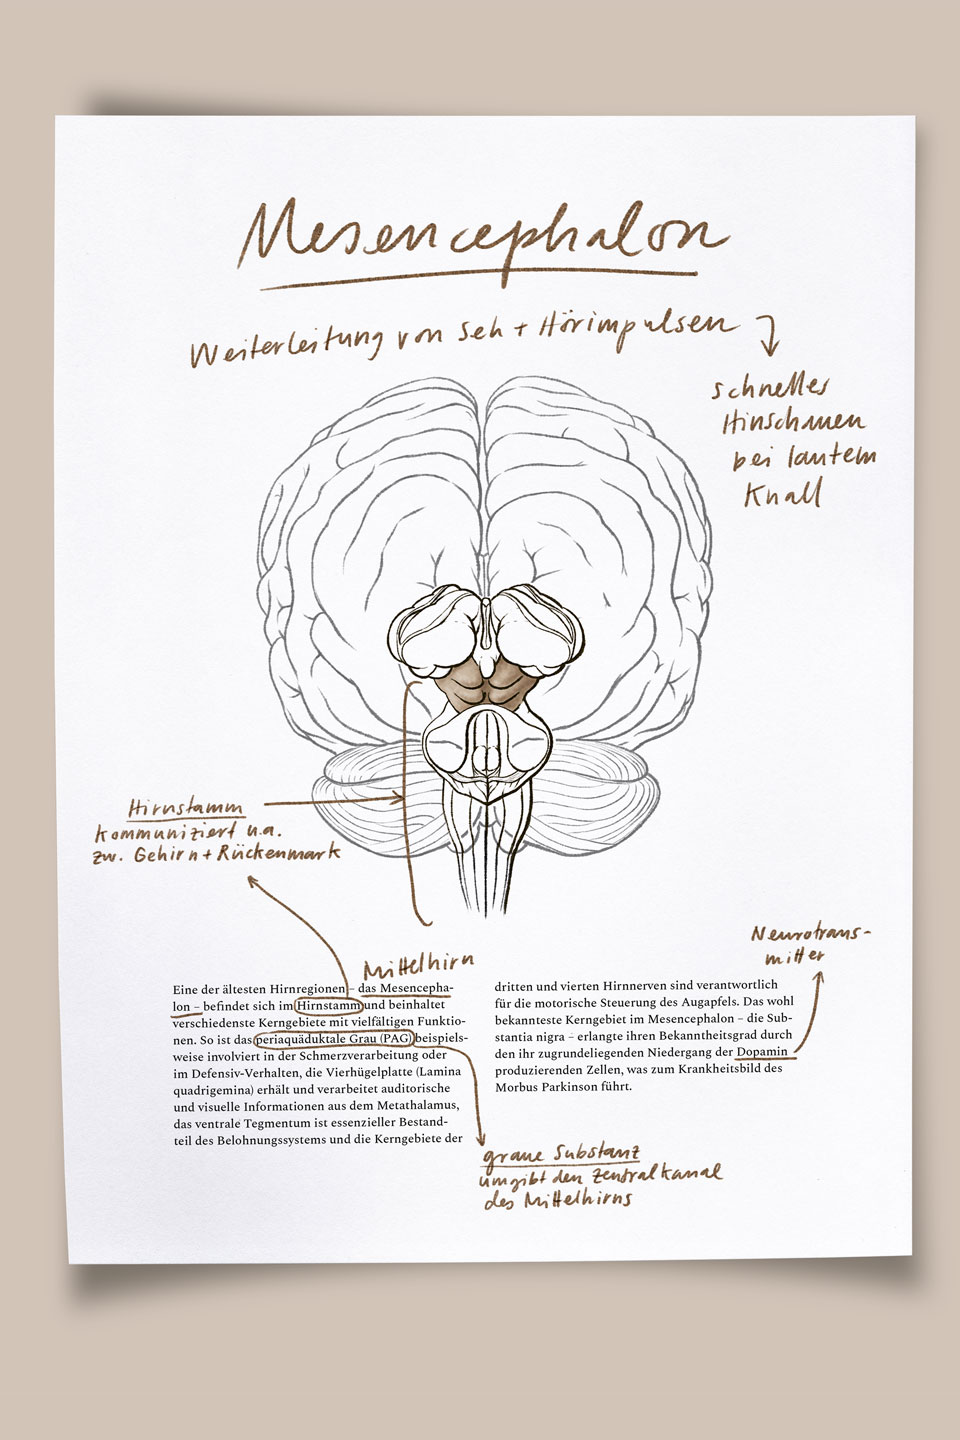 Mesencephalon
Weiterleitung von Seh + Hörimpulsen
schnelles
Hinschauen
bei lautem
Knall
Hirnstamm
kommuniziert u.a.
zw. Gehirn + Rückenmark
Mittelhirn
Neurotrans-
mitter
Eine der ältesten Hirnregionen – das Mesencepha-
lon – befindet sich im Hirnstamm und beinhaltet
verschiedenste Kerngebiete mit vielfältigen Funktio-
nen. So ist das periaquäduktale Grau (PAG) beispiels-
weise involviert in der Schmerzverarbeitung oder
im Defensiv-Verhalten, die Vierhügelplatte (Lamina
quadrigemina) erhält und verarbeitet auditorische
und visuelle Informationen aus dem Metathalamus,
das ventrale Tegmentum ist essenzieller Bestand-
teil des Belohnungssystems und die Kerngebiete der
dritten und vierten Hirnnerven sind verantwortlich
für die motorische Steuerung des Augapfels. Das wohl
bekannteste Kerngebiet im Mesencephalon – die Sub-
stantia nigra – erlangte ihren Bekanntheitsgrad durch
den ihr zugrundeliegenden Niedergang der Dopamin
produzierenden Zellen, was zum Krankheitsbild des
Morbus Parkinson führt.
graue Substanz
umgibt den Zentralkanal
des Mittelhirns